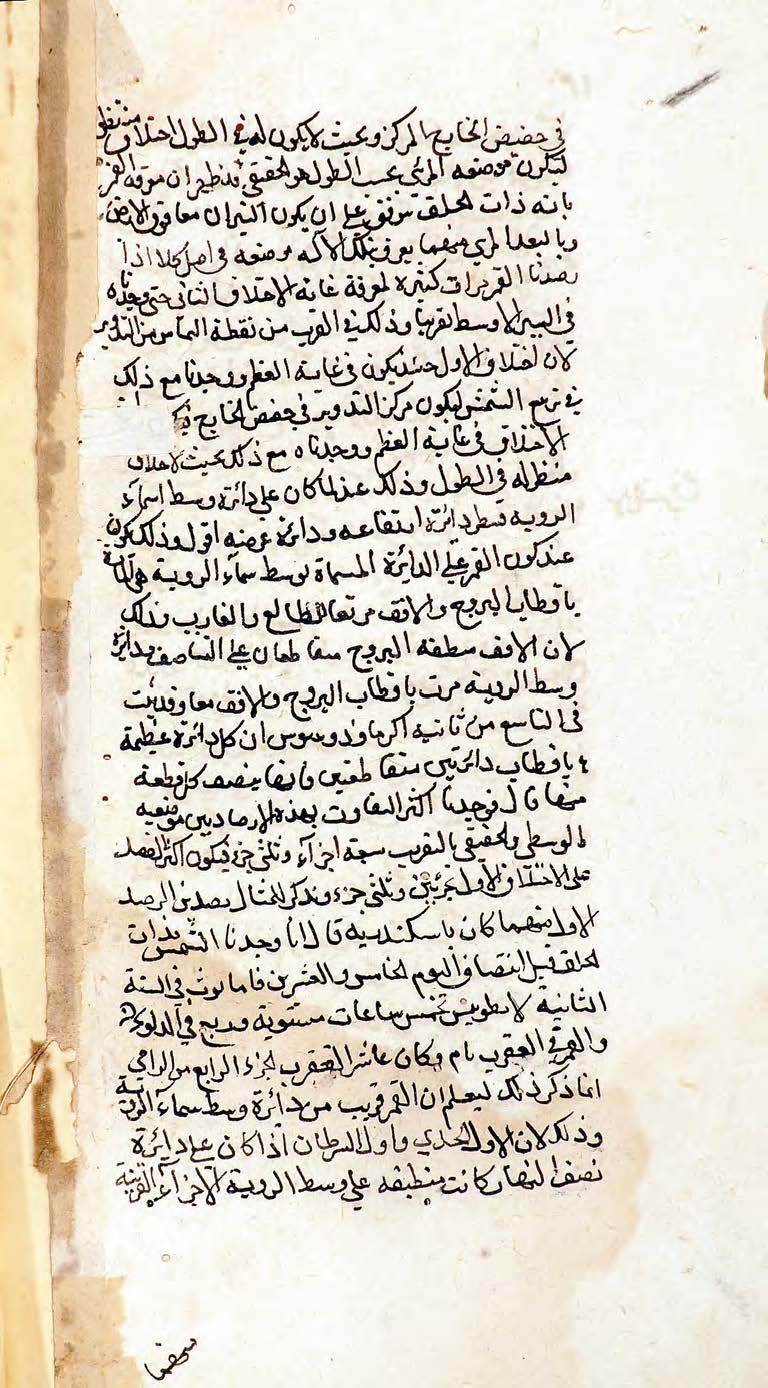 في حضيض الخارج المركز وبحيث لا يكون له في الطول اختلاف منظر
ليكون موضعه المرئي بحسب الطول هو الحقيقي قد ظهر ان موقه القمر
بانه ذات الحلق يتفق علي ان يكون النيران معا فوق الارض
وبالبعد المري منهما يعرف بتلك الآلة موضعه في اصل كلا اذا
رصدنا القمر مرات كثيرة لمعرفة غاية الاختلاف الثاني حتي وجدناه
في السير الاوسط تقريبا وذلك في القرب من نقطة التماس من التدوير
لان اختلاف الاول حينئذ يكون في غاية العظم ووجدنا مع ذلك
في تربيع الشمس ليكون مركز التدوير في حضيض الخارج
الاختلاف في غاية العظم ووجدناه مع ذلك بحيث لا اختلاف
منظر له في الطول وذلك عندما كان علي دائرة وسط اسماء
الروية قسطر دائرة ارتفاعه ودائرة عرضه اقول وذلك يكون
عند كون القمر علي الدائرة المسماة بوسط سماء الروية هي المارة
باقطاب البروج والافق مرتفعا للطالع والغارب وذلك
لان الافق منطقة البروج متقاطعان علي التناصف ودائرة
وسط الروية مرت باقطاب البروج والافق معا وقد ثبت
في التاسع من ثانية اكر ماوذوسوس ان كل دائرة عظيمة
باقطاب دائرتين متقاطعتين فانها ينصف كل قطعة
منها قال فوجدنا اكثر التفاوت بهذه الارصاد بين موضعيه
الوسطي والحقيقي بالتقريب سبعة اجزاء وثلثي جزء فيكون اكثر الفضل
علي الاختلاف الاول بجزئين وثلثي جزء ونذكر للمثال رصدين الرصد
الاول منهما كان باسكندرية قال انا وجدنا الشمس بذات
الحلق قبل انتصاف اليوم الخامس والعشرين فامانوث في السنة
الثانية لانطونيس بخمس ساعات مستوية وربع في الدلو
والقمر في العقرب وكان عاشر العقرب الجزء الرابع من الرامي
انما ذكر ذلك ليعلم ان القمر قريب من دائرة وسط سماء الروية
وذلك لان الاول الجدي واول السرطان اذا كان علي دائرة
نصف النهار كانت منطبقة علي وسط الروية الاجزاء القريبة